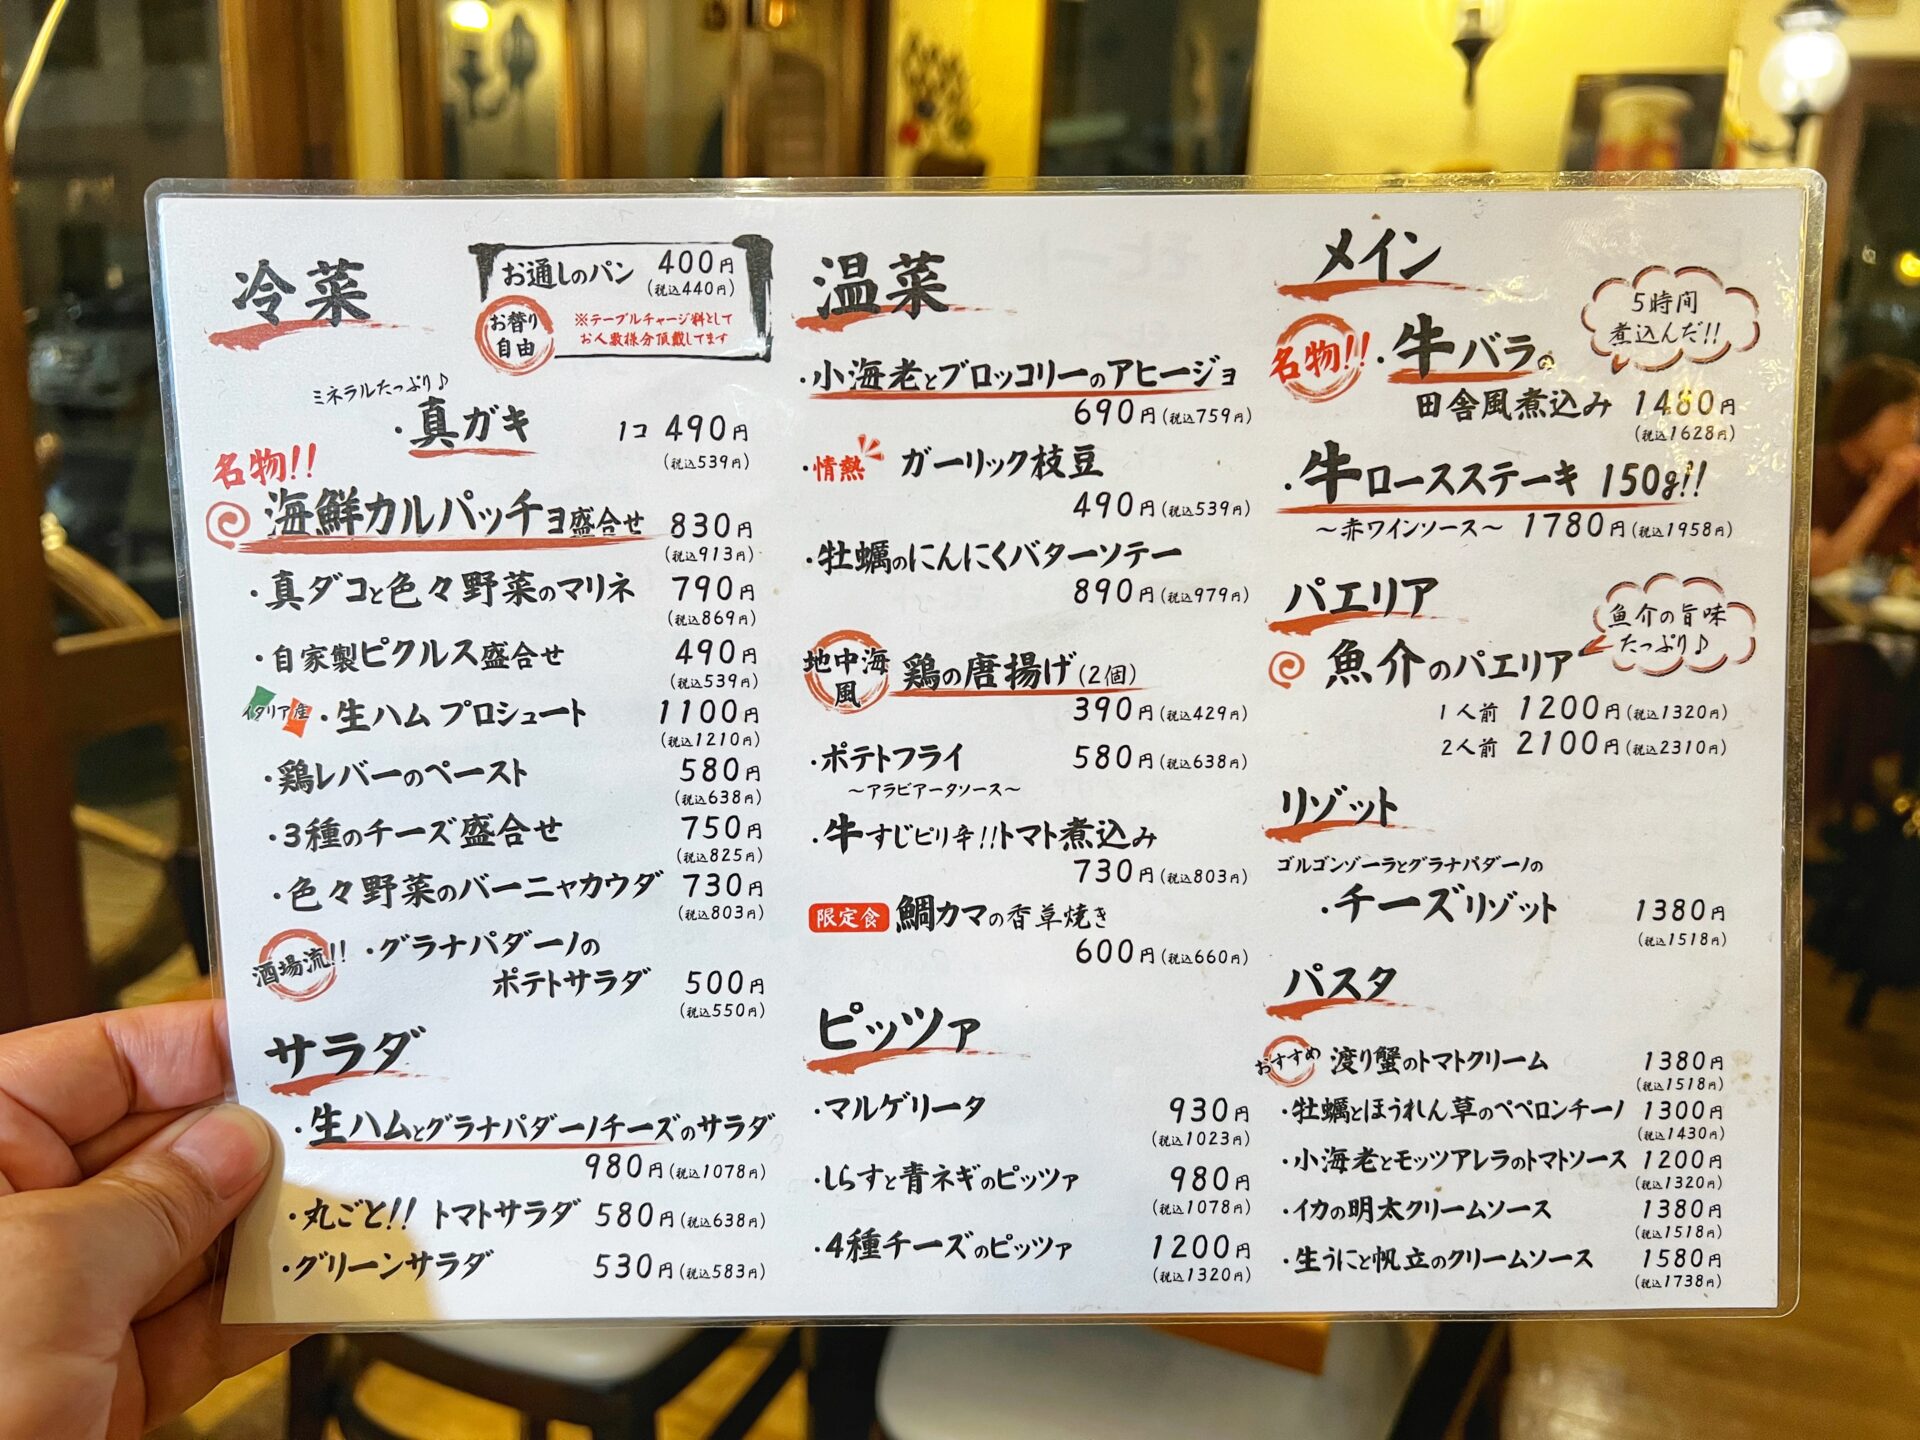 冷菜
お通しのパン 400円
(税込440円)
お替り
自由
※テーブルチャージ料として
お人数様分頂戴してます
ミネラルたっぷり♪
・真ガキ 1コ 490円
(税込539円)
名物!!
海鮮カルパッチョ盛合せ 830円
(税込913円)
・真ダコと色々野菜のマリネ 790円
(税込869円)
・自家製ピクルス盛合せ 490円
(税込539円)
イタリア産
・生ハム プロシュート 1100円
(税込1210円)
・鶏レバーのペースト 580円
(税込638円)
・3種のチーズ盛合せ 750円
(税込825円)
・色々野菜のバーニャカウダ 730円
(税込803円)
酒場流!!
・グラナパダーノの
ポテトサラダ 500円
(税込550円)
サラダ
・生ハムとグラナパダーノチーズのサラダ
980円(税込1078円)
・丸ごと!! トマトサラダ 580円(税込638円)
・グリーンサラダ 530円(税込583円)
温菜
・小海老とブロッコリーのアヒージョ
690円(税込759円)
・情熱 ガーリック枝豆
490円(税込539円)
・牡蠣のにんにくバターソテー
890円(税込979円)
地中海
風
鶏の唐揚げ(2個)
390円(税込429円)
・ポテトフライ 580円(税込638円)
〜アラビアータソース〜
・牛すじピリ辛!!トマト煮込み
730円(税込803円)
限定食 鯛カマの香草焼き
600円(税込660円)
ピッツァ
・マルゲリータ 930円
(税込1023円)
・しらすと青ネギのピッツァ 980円
(税込1078円)
・4種チーズのピッツァ 1200円
(税込1320円)
メイン
5時間
煮込んだ!!
名物!!
・牛バラの
田舎風煮込み 1480円
(税込1628円)
・牛ロースステーキ 150g!!
〜赤ワインソース〜 1780円(税込1958円)
パエリア
魚介の旨味
たっぷり♪
魚介のパエリア
1人前 1200円(税込1320円)
2人前 2100円(税込2310円)
リゾット
ゴルゴンゾーラとグラナパダーノの
・チーズリゾット 1380円
(税込1518円)
パスタ
おすすめ 渡り蟹のトマトクリーム 1380円
(税込1518円)
・牡蠣とほうれん草のペペロンチーノ 1300円
(税込1430円)
・小海老とモッツアレラのトマトソース 1200円
(税込1320円)
・イカの明太クリームソース 1380円
(税込1518円)
・生うにと帆立のクリームソース 1580円
(税込1738円)